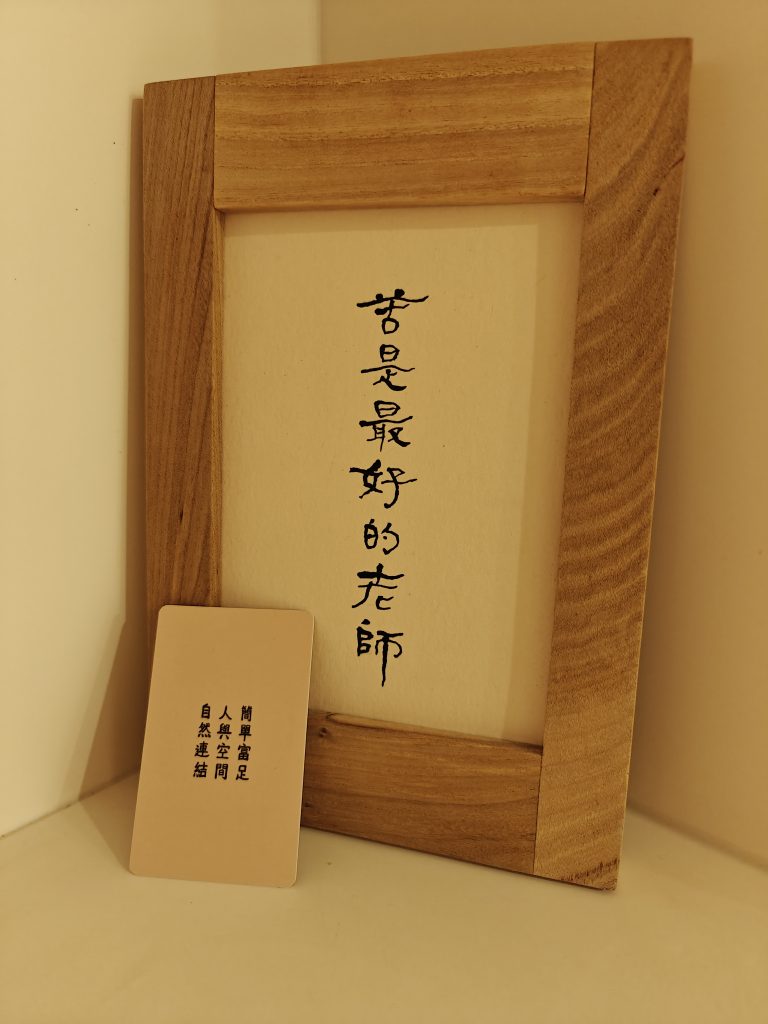 苦是最好的老師
簡單富足
人與空間
自然連結